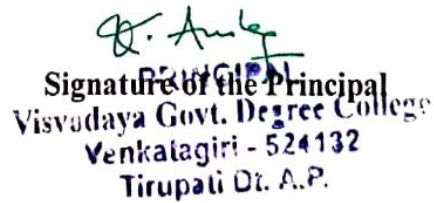 PRINCIPAL
Signature of the Principal
Visvodaya Govt. Degree College
Venkatagiri - 524132
Tirupati Dt. A.P.